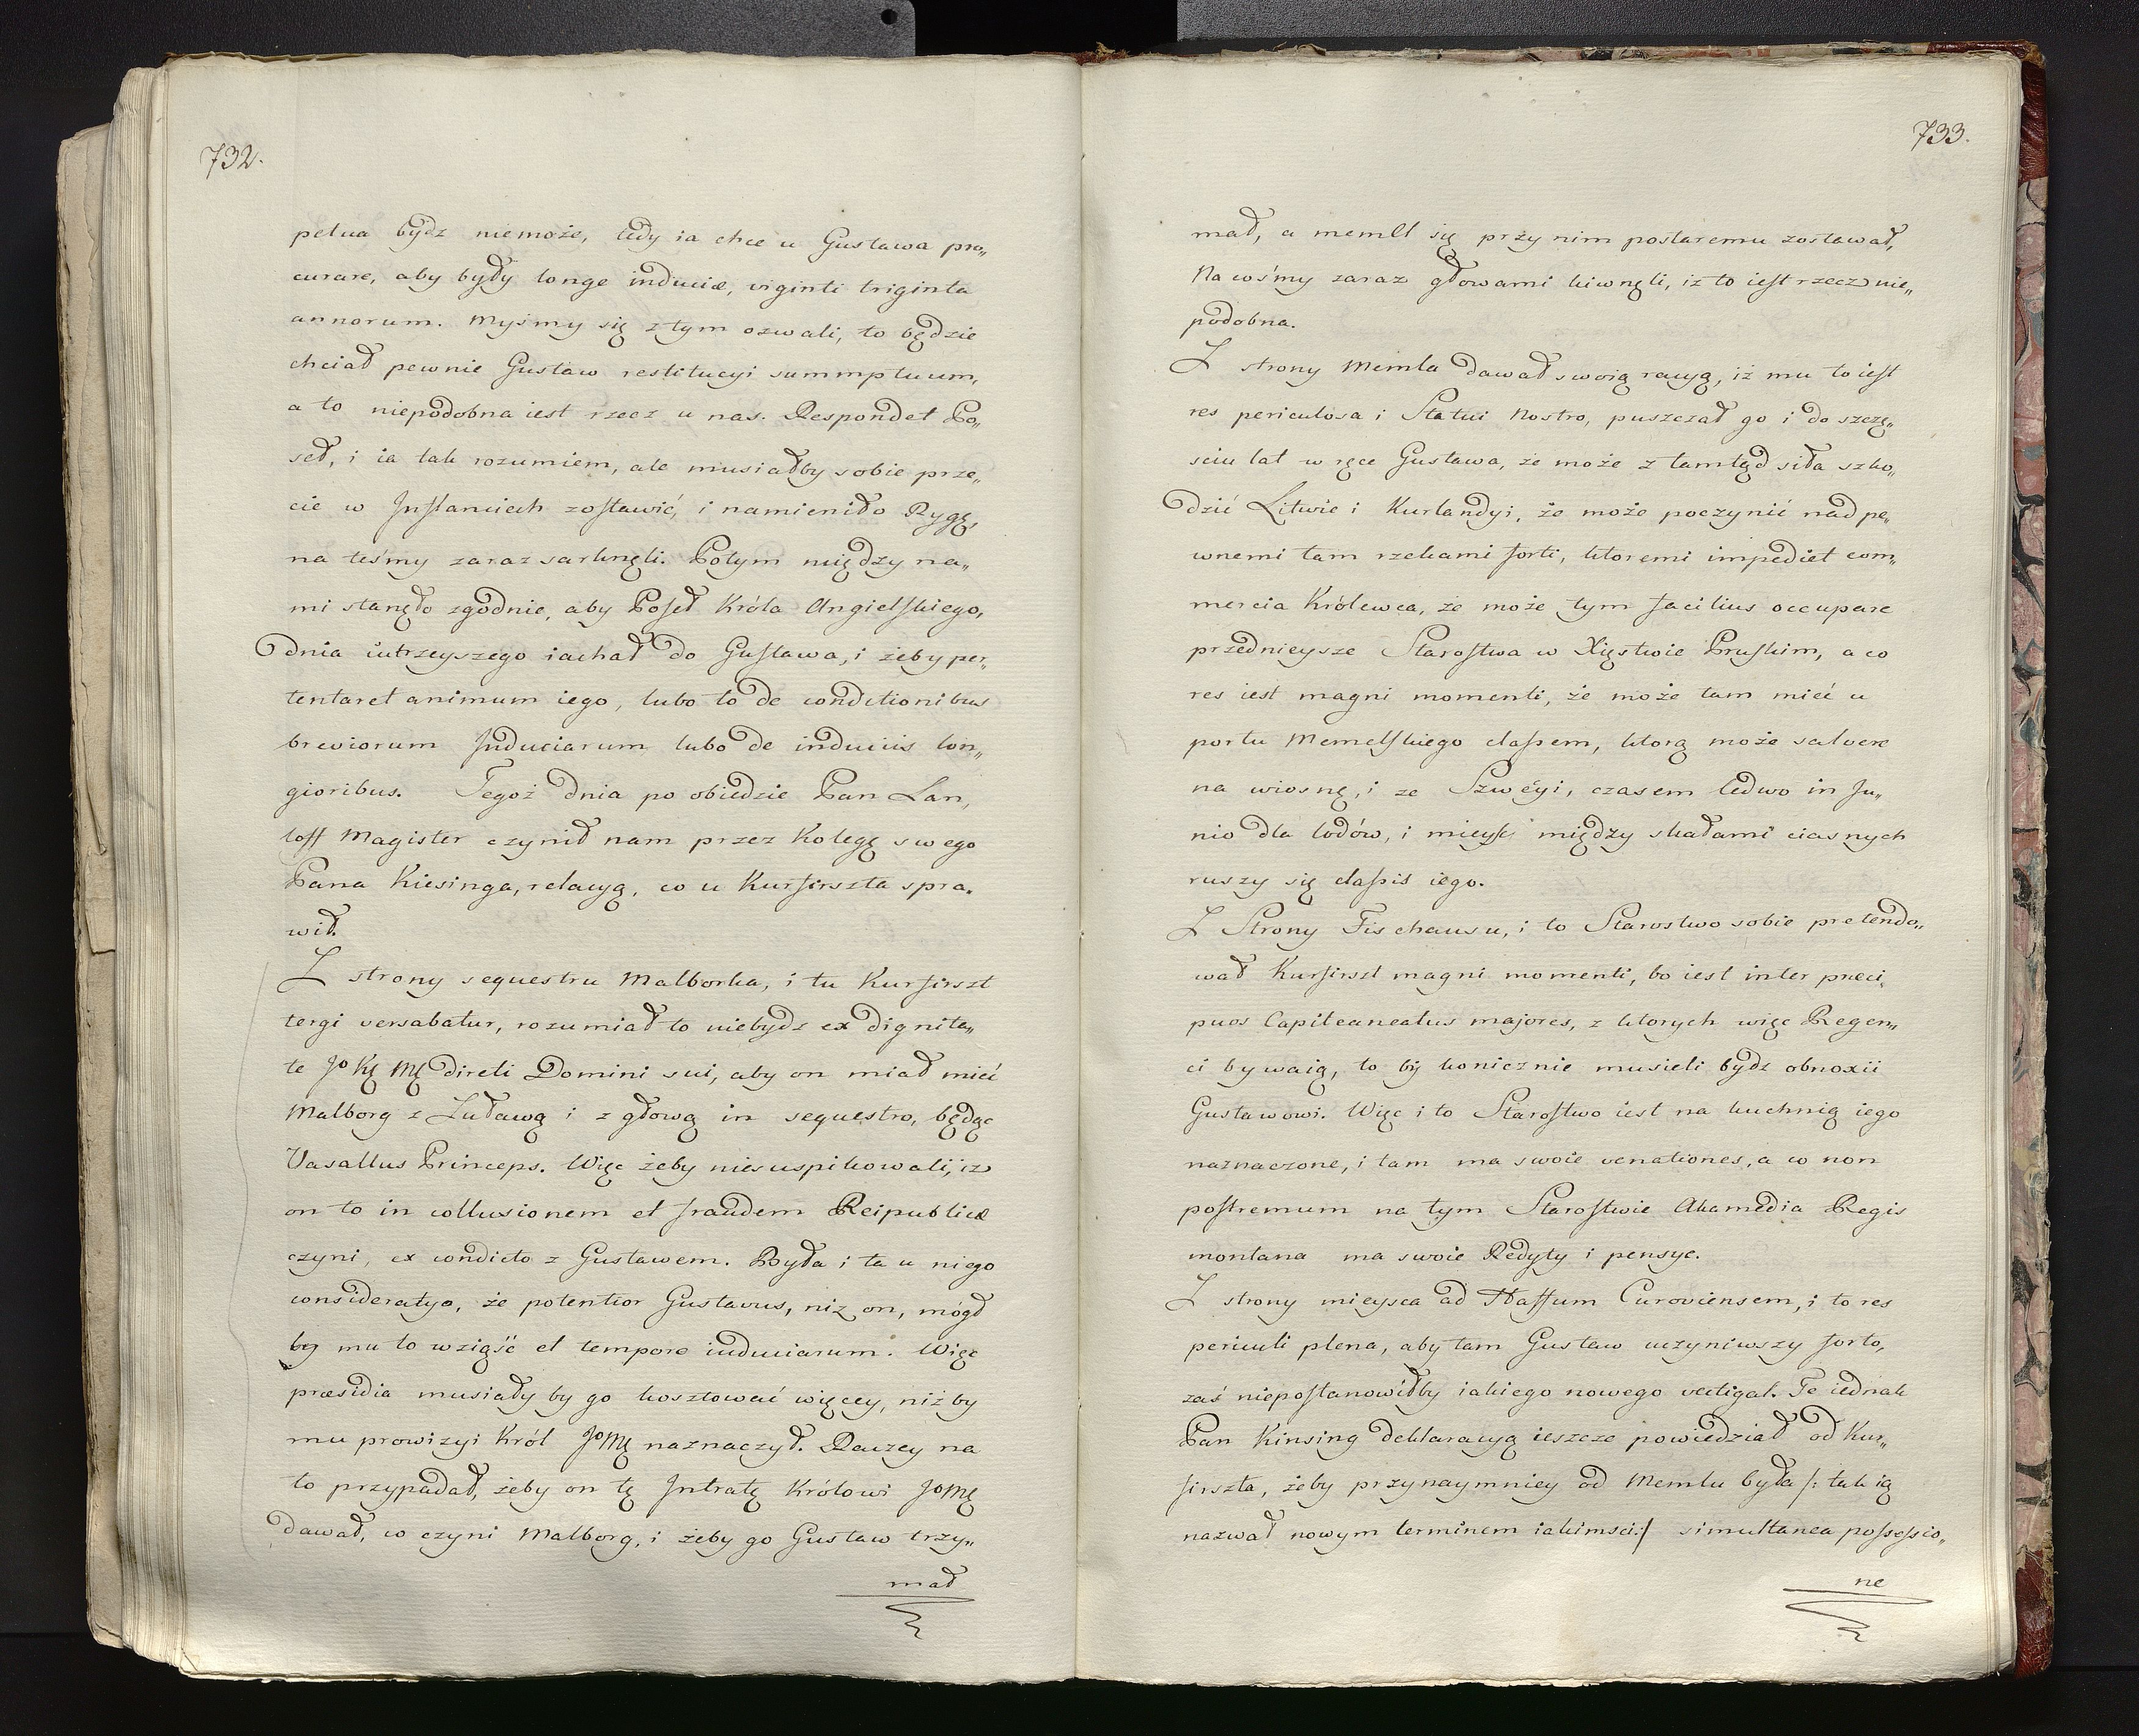 732.
petua bydz niemoże, tedy ia chce u Gustawa pro„
curare, aby były longe induciæ, viginti triginta
annorum. Myśmy się z tym ozwali, to będzie
chciał pewnie Gustaw restitucyi summptuum,
a to niepodobna iest rzecz u nas. Respondet Po„
seł, i ia tak rozumiem, ale musiałby sobie prze„
cie w Inflanciech zostawić, i namieniło Rygę,
na teśmy zaraz sarknęli. Potym między na„
mi stanęło zgodnie, aby Poseł Króla Angielskiego,
dnia iutrzeyszego iachał do Gustawa, i żeby per„
tentaret animum iego, lubo to de conditionibus
breviorum Induciarum, lubo de induciis lon„
gioribus. Tegoż dnia po obiedzie Pan Lan„
loff Magister czynił nam przez Kolegę swego
Pana Kiesinga, relacyą, co u Kurfirszta spra„
wił.
Z strony sequestru Malborka, i tu Kurfirszt
tergi versabatur, rozumiał to niebydz ex dignita„
te Jo Kę Mę direti Domini sui, aby on miał mieć
Malborg z Żuławą i z głową in sequestro, będąc
Vasallus Princeps. Więc żeby niesuspikowali, iz
on to in collusionem et fraudem Reipublicæ
czyni, ex condicto z Gustawem. Była i ta u niego
consideratyo, że potentior Gustavus, niż on, mógł
by mu to wziąść et tempore induciarum. Więc
præsidia musiały by go kosztować więcey, niżby
mu prowizyi Król JoMę naznaczył. Raczey na
to przypadał, żeby on tę Intratę Królowi JoMę
dawał, co czyni Malborg, i żeby go Gustaw trzy„
mał
733.
mał, a memel się przy nim postaremu zostawał,
Na cośmy zaraz głowami kiwnęli, iż to iest rzecz nie„
podobna.
Z strony Memla dawał swoią racyą, iż mu to iest
res periculosa i Statui Nostro, puszczał go i do szczę„
sciu lat w ręce Gustawa, że może z tamtąd siła szko„
dzić Litwie i Kurlandyi, że może poczynić nad pe„
wnemi tam rzekami forti, ktoremi impediet com„
mercia Królewca, że może tym facilius occupare
przednieysze Starostwa w Xięstwie Pruskim, a co
res iest magni momenti, że może tam mieć u
portu Memelskiego classem, ktorą może salvere
na wiosnę, i ze Szwéyi, czasem ledwo in Ju„
nio dla lodów, i mieysc między skałami ciasnych
ruszy się classis iego.
Z Strony Fischausu, i to Starostwo sobie pretendo„
wał Kurfirszt magni momenti, bo iest inter preci„
puos Capiteaneatus majores, z ktorych więc Regen„
ci bywaią, to by koniecznie musieli bydz obnoxii
Gustawowi. Więc i to Starostwo iest na kuchnią iego
naznaczone, i tam ma swoie venationes, a co non
postremum na tym Starostwie Akamedia Regis
montana ma swoie Redyty i pensye.
Z strony mieysca ad Haffum Curoviensem, i to res
periculi plena, aby tam Gustaw uczyniwszy forto,
zaś niepostanowiłby iakiego nowego vectigal. Te iednak
Pan Kinsing deklaracyą ieszcze powiedział od Kur„
firszta, żeby przynaymniey od Memlu była /: tak ią
nazwał nowym terminem iakimsci :/ simultanea possessio„
ne